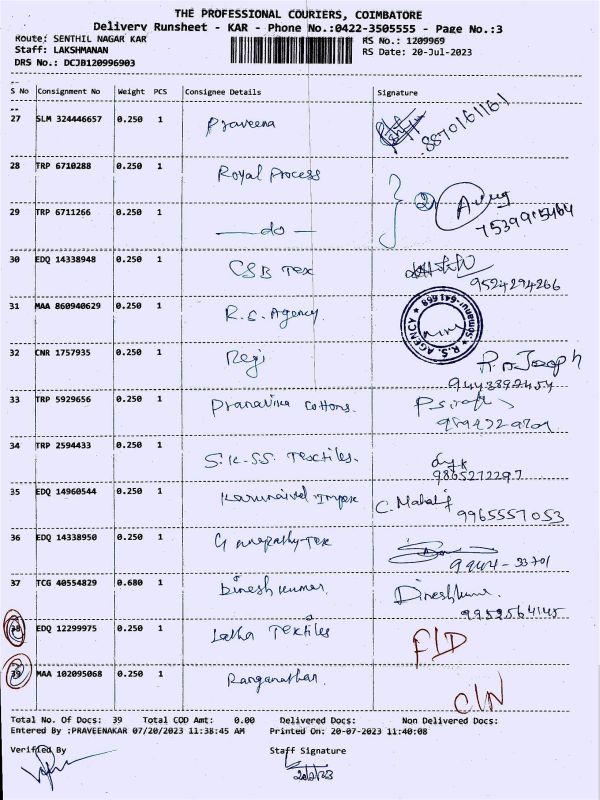 THE PROFESSIONAL COURIERS, COIMBATORE
Delivery Runsheet - KAR - Phone No.:0422-3505555 - Page No.:3
Route: SENTHIL NAGAR KAR RS No.: 1209969
Staff: LAKSHMANAN RS Date: 20-Jul-2023
DRS No.: DCJB120996903
S No Consignment No Weight PCS Consignee Details Signature
27 SLM 324446657 0.250 1 Praveena 8870161161
28 TRP 6710288 0.250 1 Royal Process
29 TRP 6711266 0.250 1 — do — 2
30 EDQ 14338948 0.250 1 CSB Tex 9524294266
31 MAA 860940629 0.250 1 R.S. Agency R.S. AGENCY
32 CNR 1757935 0.250 1 Regi Joseph
33 TRP 5929656 0.250 1 Cottons.
34 TRP 2594433 0.250 1 S.K.SS. Textiles. 9865272297
35 EDQ 14960544 0.250 1 Impex C. 9965557053
36 EDQ 14338950 0.250 1 Ganapathy Tex
37 TCG 40554829 0.680 1 Dinesh Kumar. Dineshkumar
38 EDQ 12299975 0.250 1 Latha Textiles
39 MAA 102095068 0.250 1 Ranganathan. C/N
Total No. Of Docs: 39 Total COD Amt: 0.00 Delivered Docs: Non Delivered Docs:
Entered By :PRAVEENAKAR 07/20/2023 11:38:45 AM Printed On: 20-07-2023 11:40:08
Verified By Staff Signature